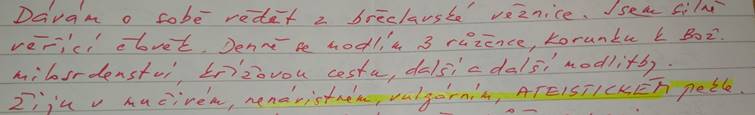 Dávám o sobě vědět z břeclavské věznice. Jsem silně
věřící člověk. Denně se modlím 3 růžence, Korunku k Bož.
milosrdenství, křížovou cestu, další a další modlitby.
Žiju v mučivém, nenávistném, vulgárním, ATEISTICKÉM pekle.